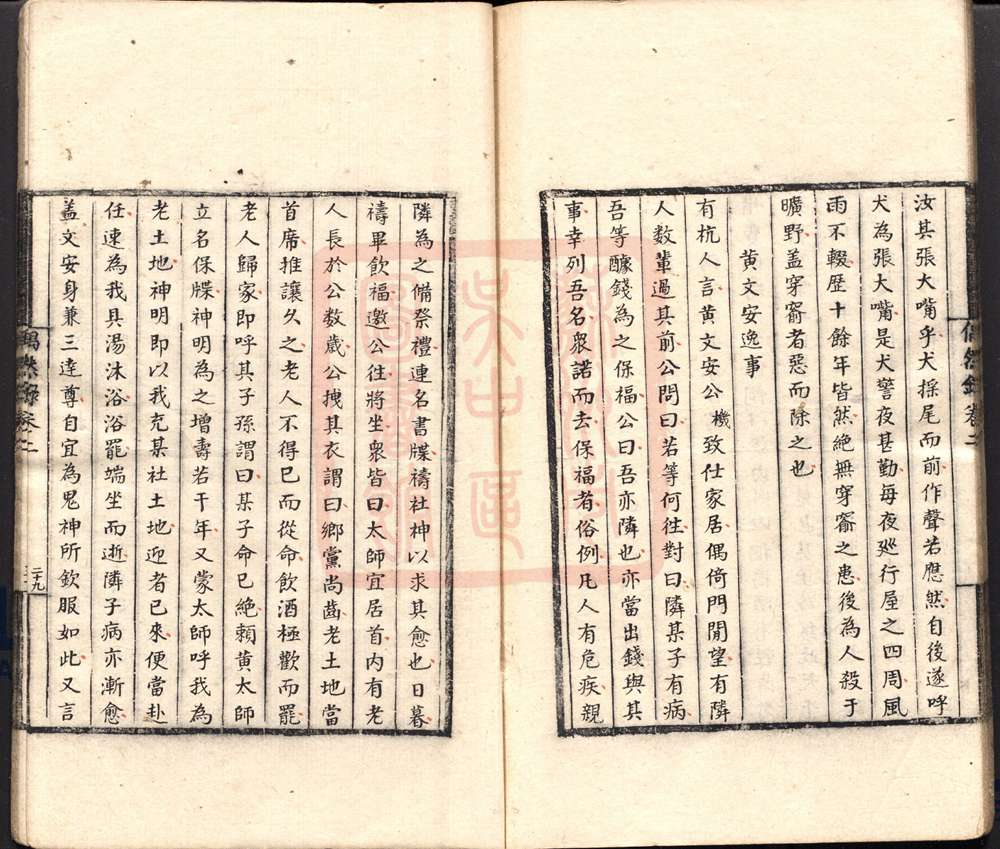 偶然錄 卷二
汝其張大嘴乎犬搖尾而前作聲若應然自後遂呼
犬為張大嘴是犬警夜甚勤每夜廵行屋之四周風
雨不輟歷十餘年皆然絕無穿窬之患後為人殺于
曠野盖穿窬者惡而除之也
黃文安逸事
有杭人言黃文安公機致仕家居偶倚門閒望有隣
人數輩過其前公問曰若等何往對曰隣某子有病
吾等醵錢為之保福公曰吾亦隣也亦當出錢與其
事幸列吾名衆諾而去保福者俗例凡人有危疾親
隣為之備祭禮連名書牒禱社神以求其愈也日暮
禱畢飲福邀公往將坐衆皆曰太師宜居首内有老
人長於公數歲公拽其衣謂曰鄉黨尚齒老土地當
首席推讓久之老人不得已而從命飲酒極歡而罷
老人歸家即呼其子孫謂曰某子命已絕賴黃太師
立名保牒神明為之增壽若干年又蒙太師呼我為
老土地神明即以我充某社土地迎者已來便當赴
任速為我具湯沐浴浴罷端坐而逝隣子病亦漸愈
盖文安身兼三達尊自宜為鬼神所欽服如此又言
偶然錄 卷二
二十九